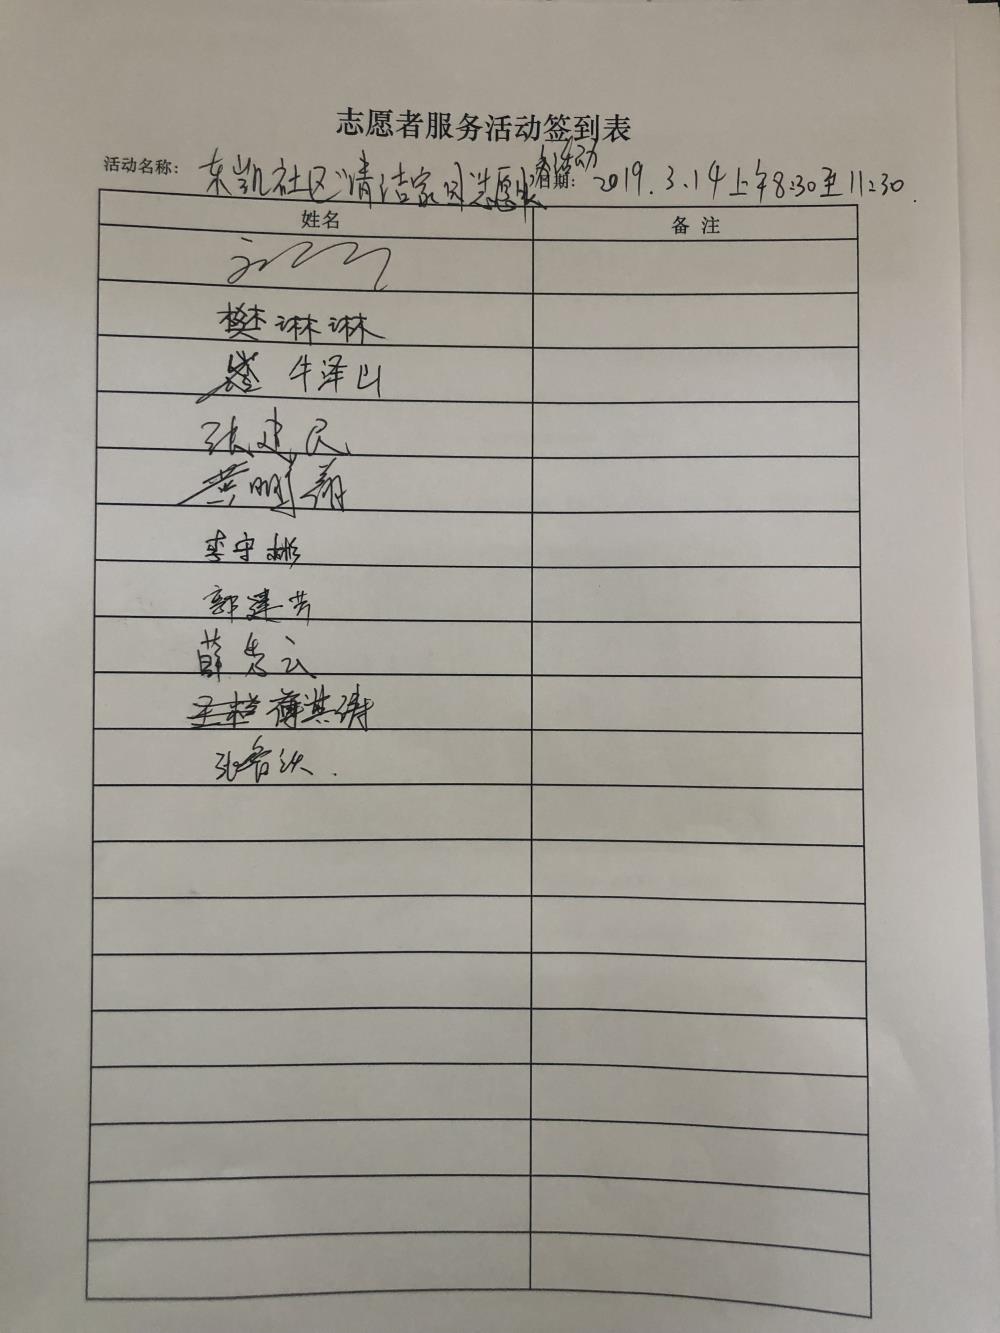 志愿者服务活动签到表
活动名称: 东凯社区"清洁家园"志愿服务活动 日期: 2019.3.14上午8:30至11:30.
姓名 备注
樊淋淋
牛泽山
张建民
黄明
李守彬
郭建芳
薛 云
薄淇
张